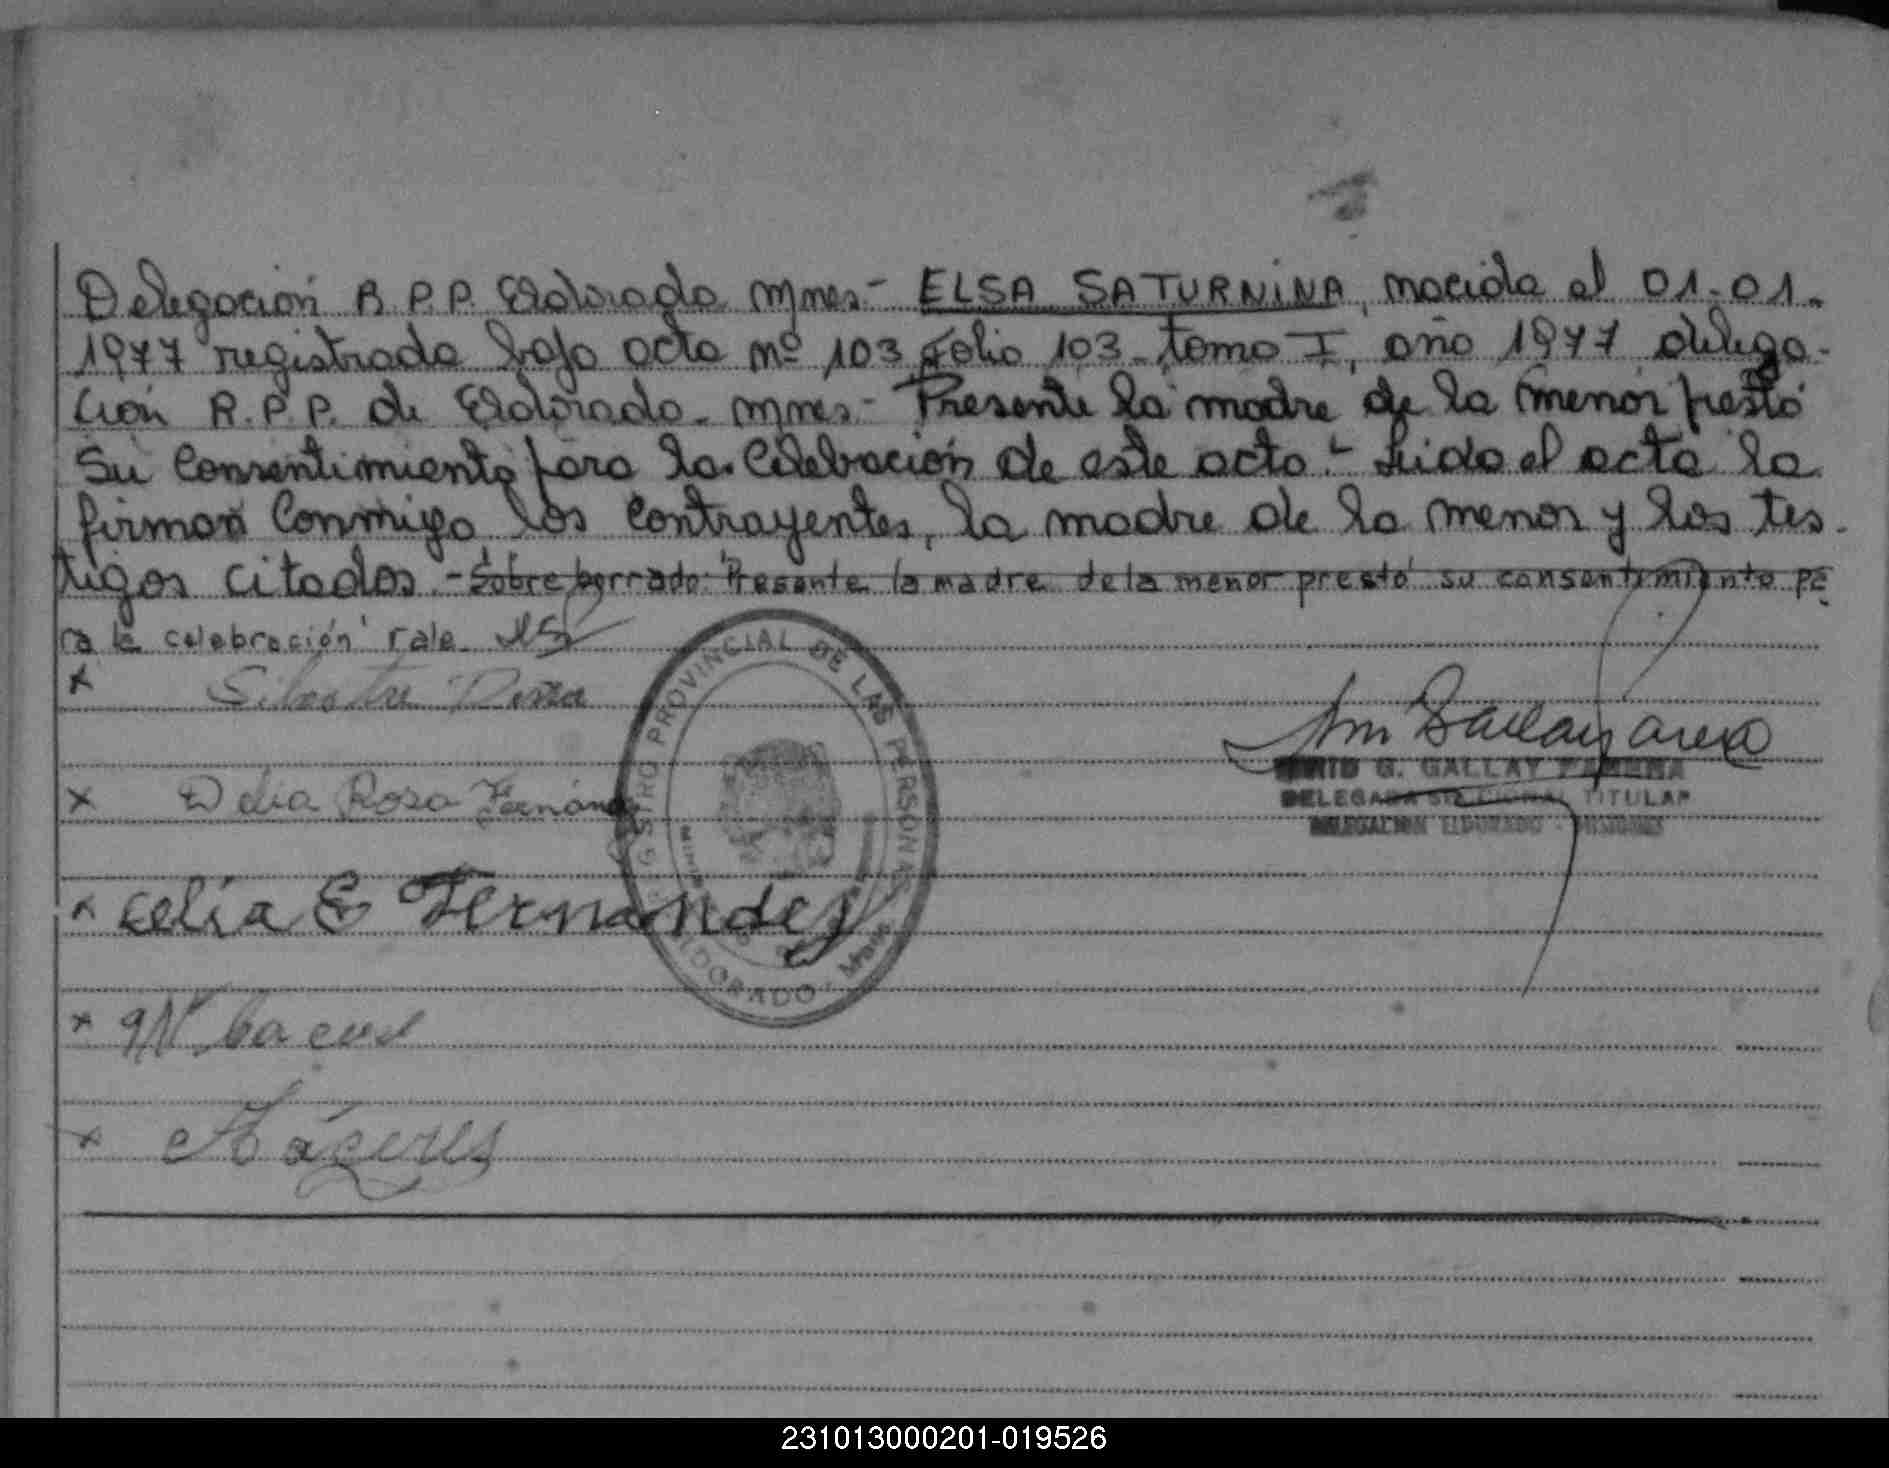 Delegación R.P.P. Eldorado Mnes- ELSA SATURNINA, nacida el 01-01-
1977 registrada bajo acta nº 103 folio 103 tomo I, año 1977 delega-
ción R.P.P. de Eldorado- Mnes- Presente la madre de la menor prestó
su consentimiento para la celebración de este acto.- Leida el acta la
firman conmigo los contrayentes, la madre de la menor y los tes-
tigos citados.- Sobre borrado: "Presente la madre de la menor prestó su consentimiento pa
ra la celebración" vale.
x Silvestre
x Delia Rosa Fernánd
x Celia E Fernandez
x
x
REGISTRO PROVINCIAL DE LAS PERSONAS
ELDORADO - Mnes
G. GALLAY
DELEGADA SECCIONAL TITULAR
DELEGACION ELDORADO - MISIONES
231013000201-019526